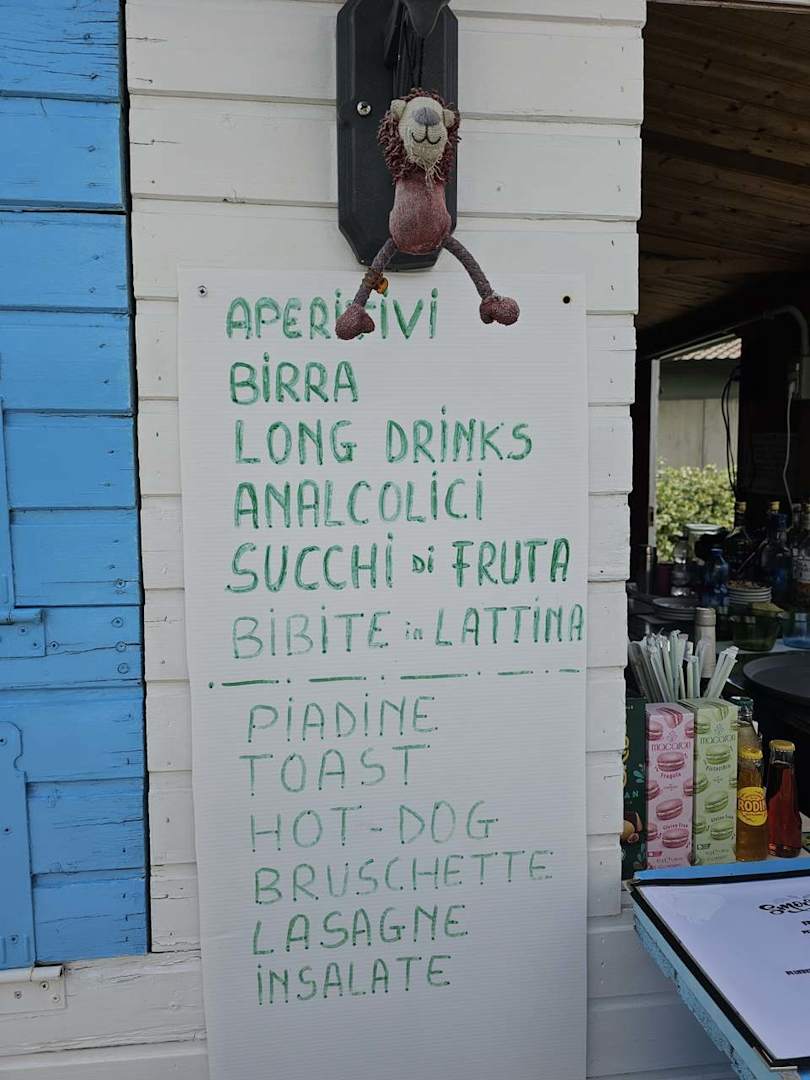 APERITIVI
BIRRA
LONG DRINKS
ANALCOLICI
SUCCHI Di FRUTA
BIBITE in LATTINA
PIADINE
TOAST
HOT-DOG
BRUSCHETTE
LASAGNE
INSALATE
macaron
Fragola
Gluten Free
macaron
Pistacchio
Gluten Free